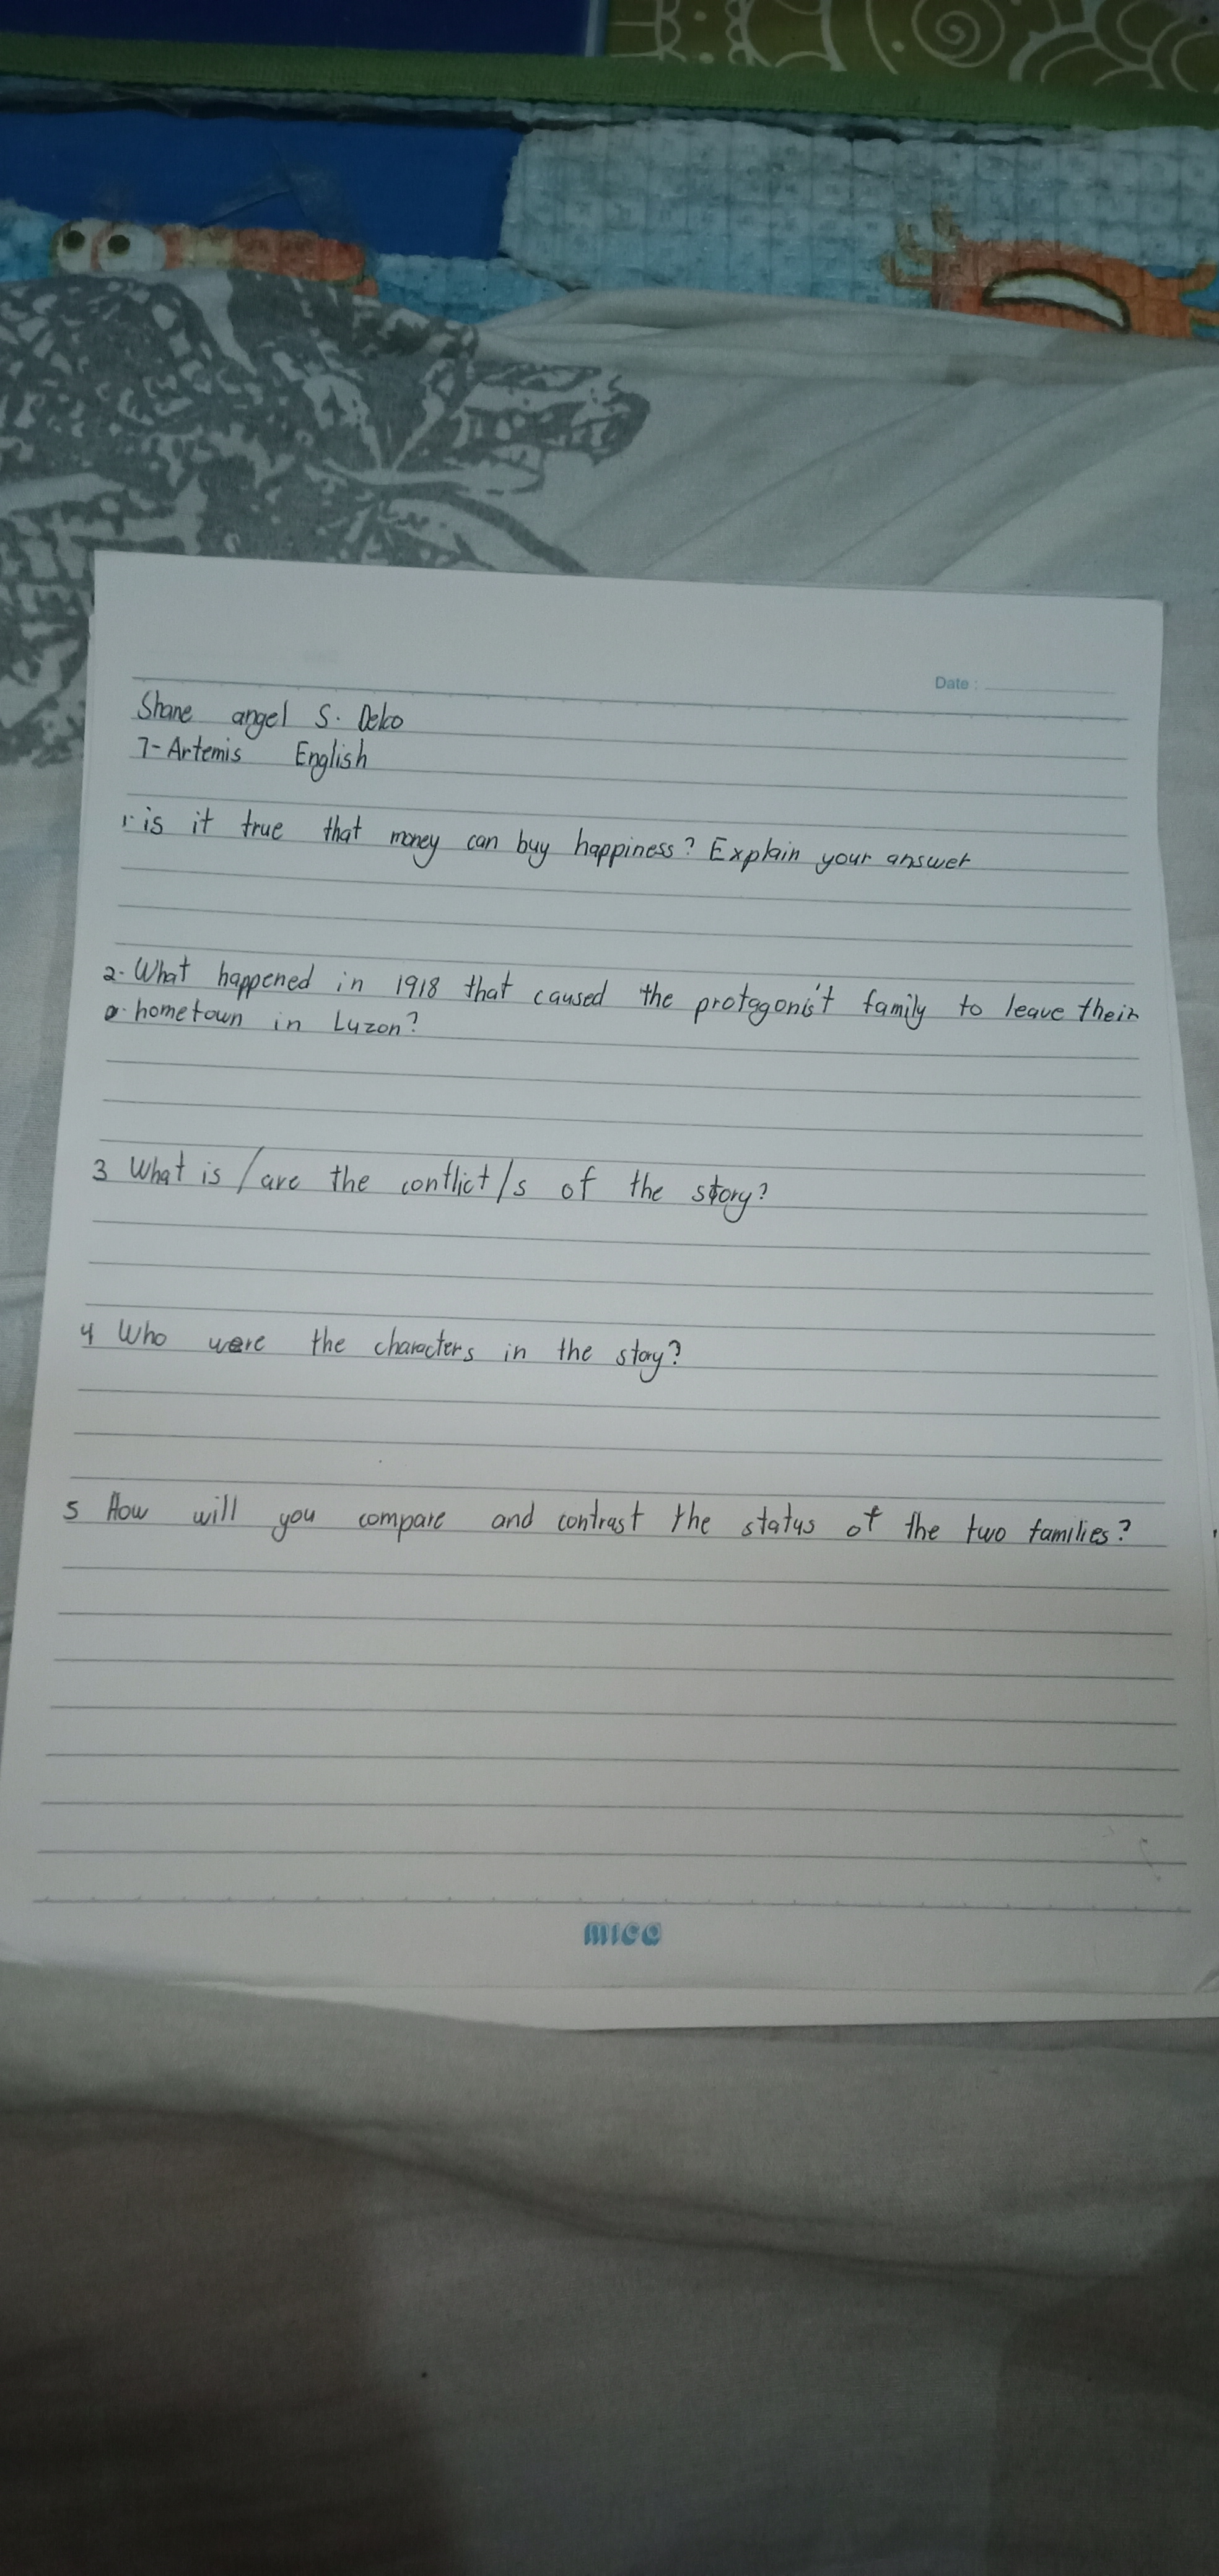 Date :
Shane angel S. Deko
7-Artemis English
1. is it true that money can buy happiness? Explain your answer
2. What happened in 1918 that caused the protagonis't family to leave their
hometown in Luzon?
3 What is / are the conflict/s of the story?
4 Who were the characters in the story?
5 How will you compare and contrast the status of the two families?
mico